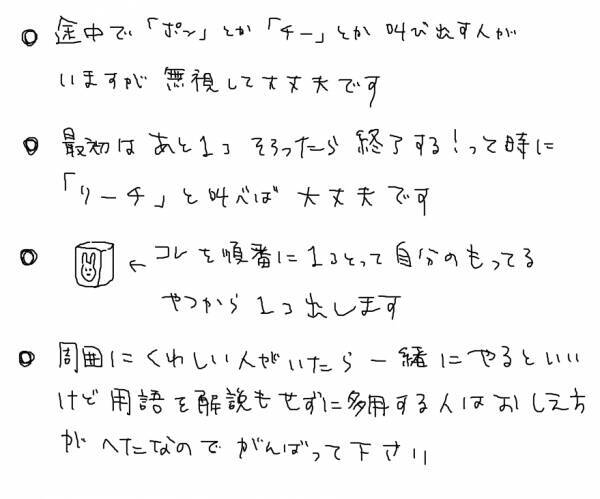 途中で「ポン」とか「チー」とか叫び出す人が
いますが無視して大丈夫です
最初はあと1コそろったら終了する!って時に
「リーチ」と叫べば大丈夫です
←コレを順番に1コとって自分のもってる
やつから1コ出します
周囲にくわしい人がいたら一緒にやるといい
けど用語を解説もせずに多用する人はおしえ方
がヘたなのでがんばって下さい